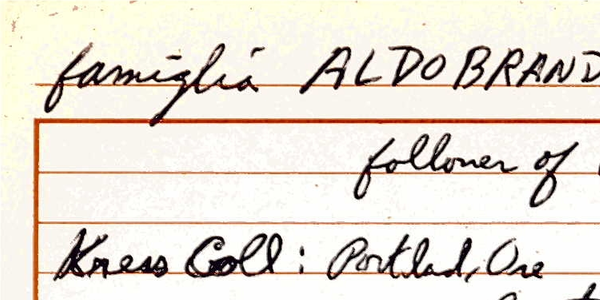 famiglia ALDOBRAND
follower of
Kress Coll: Portlad, Ore